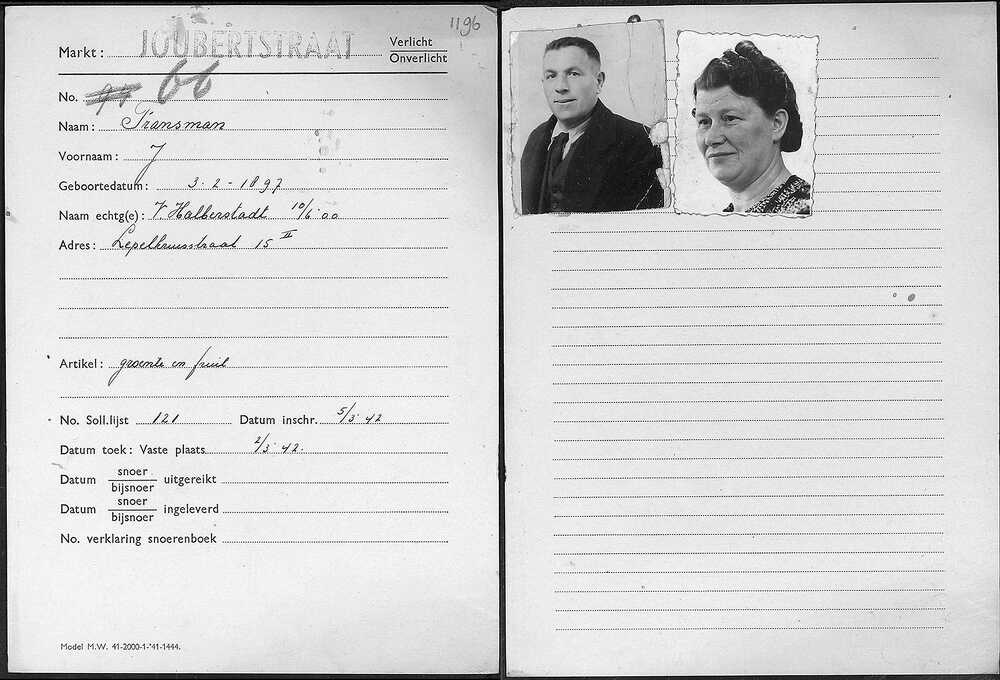 1196
Markt: JOUBERTSTRAAT Verlicht
Onverlicht
No. 66
Naam: Transman
Voornaam: J
Geboortedatum: 3-2-1897
Naam echtg(e): V. Halberstadt 10/6-00
Adres: Lepelkruisstraat 15 II
Artikel: groente en fruit
No. Soll.lijst 121 Datum inschr. 5/3-42
Datum toek: Vaste plaats 2/3-42.
Datum snoer uitgereikt
bijsnoer
Datum snoer ingeleverd
bijsnoer
No. verklaring snoerenboek
Model M.W. 41-2000-1-'41-1444.